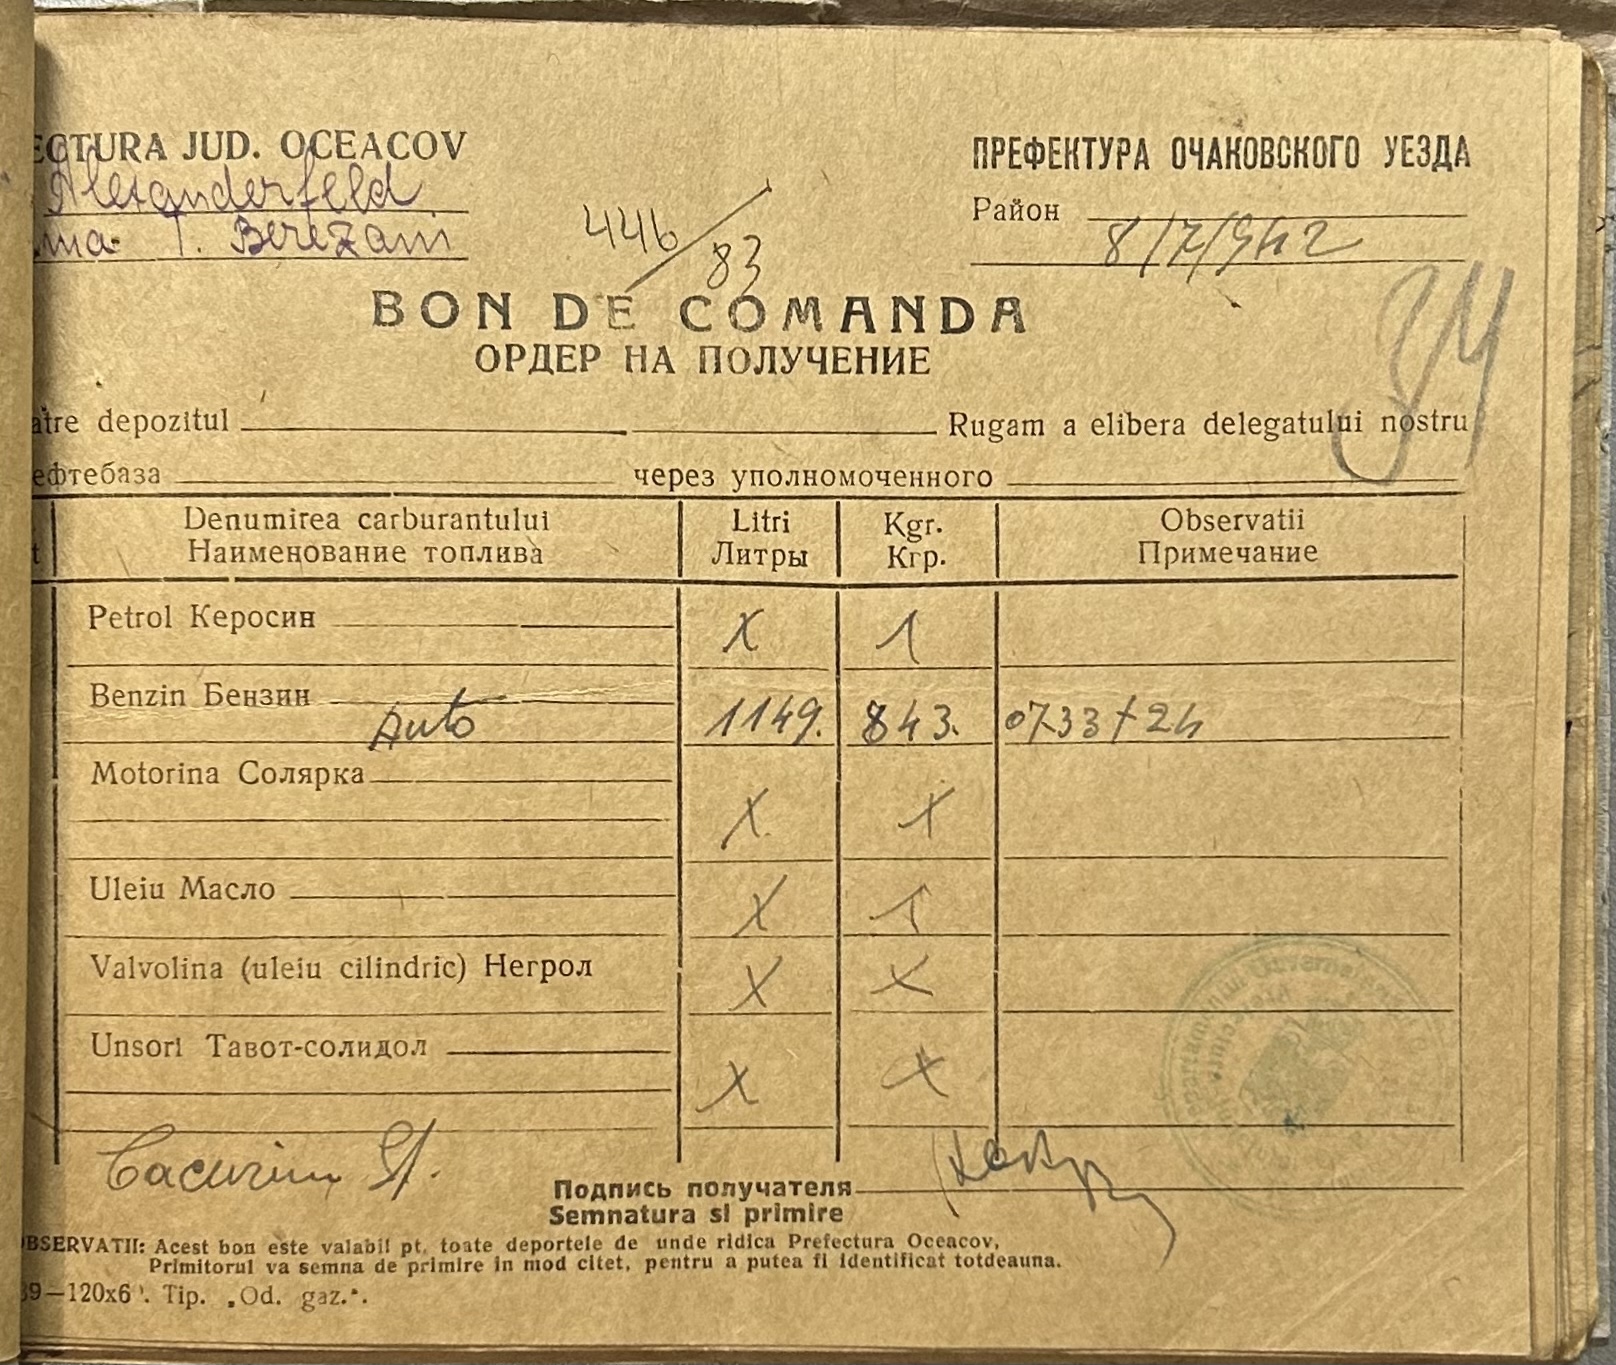 ECTURA JUD. OCEACOV
ПРЕФЕКТУРА ОЧАКОВСКОГО УЕЗДА
Alexanderfeld
T. Berezani
446/83
Район
8/7/942
34
BON DE COMANDA
ОРДЕР НА ПОЛУЧЕНИЕ
atre depozitul Rugam a elibera delegatului nostru
ефтебаза через уполномоченного
Denumirea carburantului Litri Kgr. Observatii
Наименование топлива Литры Кгр. Примечание
Petrol Керосин X
Benzin Бензин
Auto 1149. 843. 0733 + 24
Motorina Солярка
X X
Uleiu Масло
X
Valvolina (uleiu cilindric) Негрол X X
Unsori Тавот-солидол
X X
Подпись получателя
Semnatura si primire
OBSERVATII: Acest bon este valabil pt. toate deportele de unde ridica Prefectura Oceacov,
Primitorul va semna de primire in mod citet, pentru a putea fi identificat totdeauna.
39—120x6 . Tip. „Od. gaz.“.